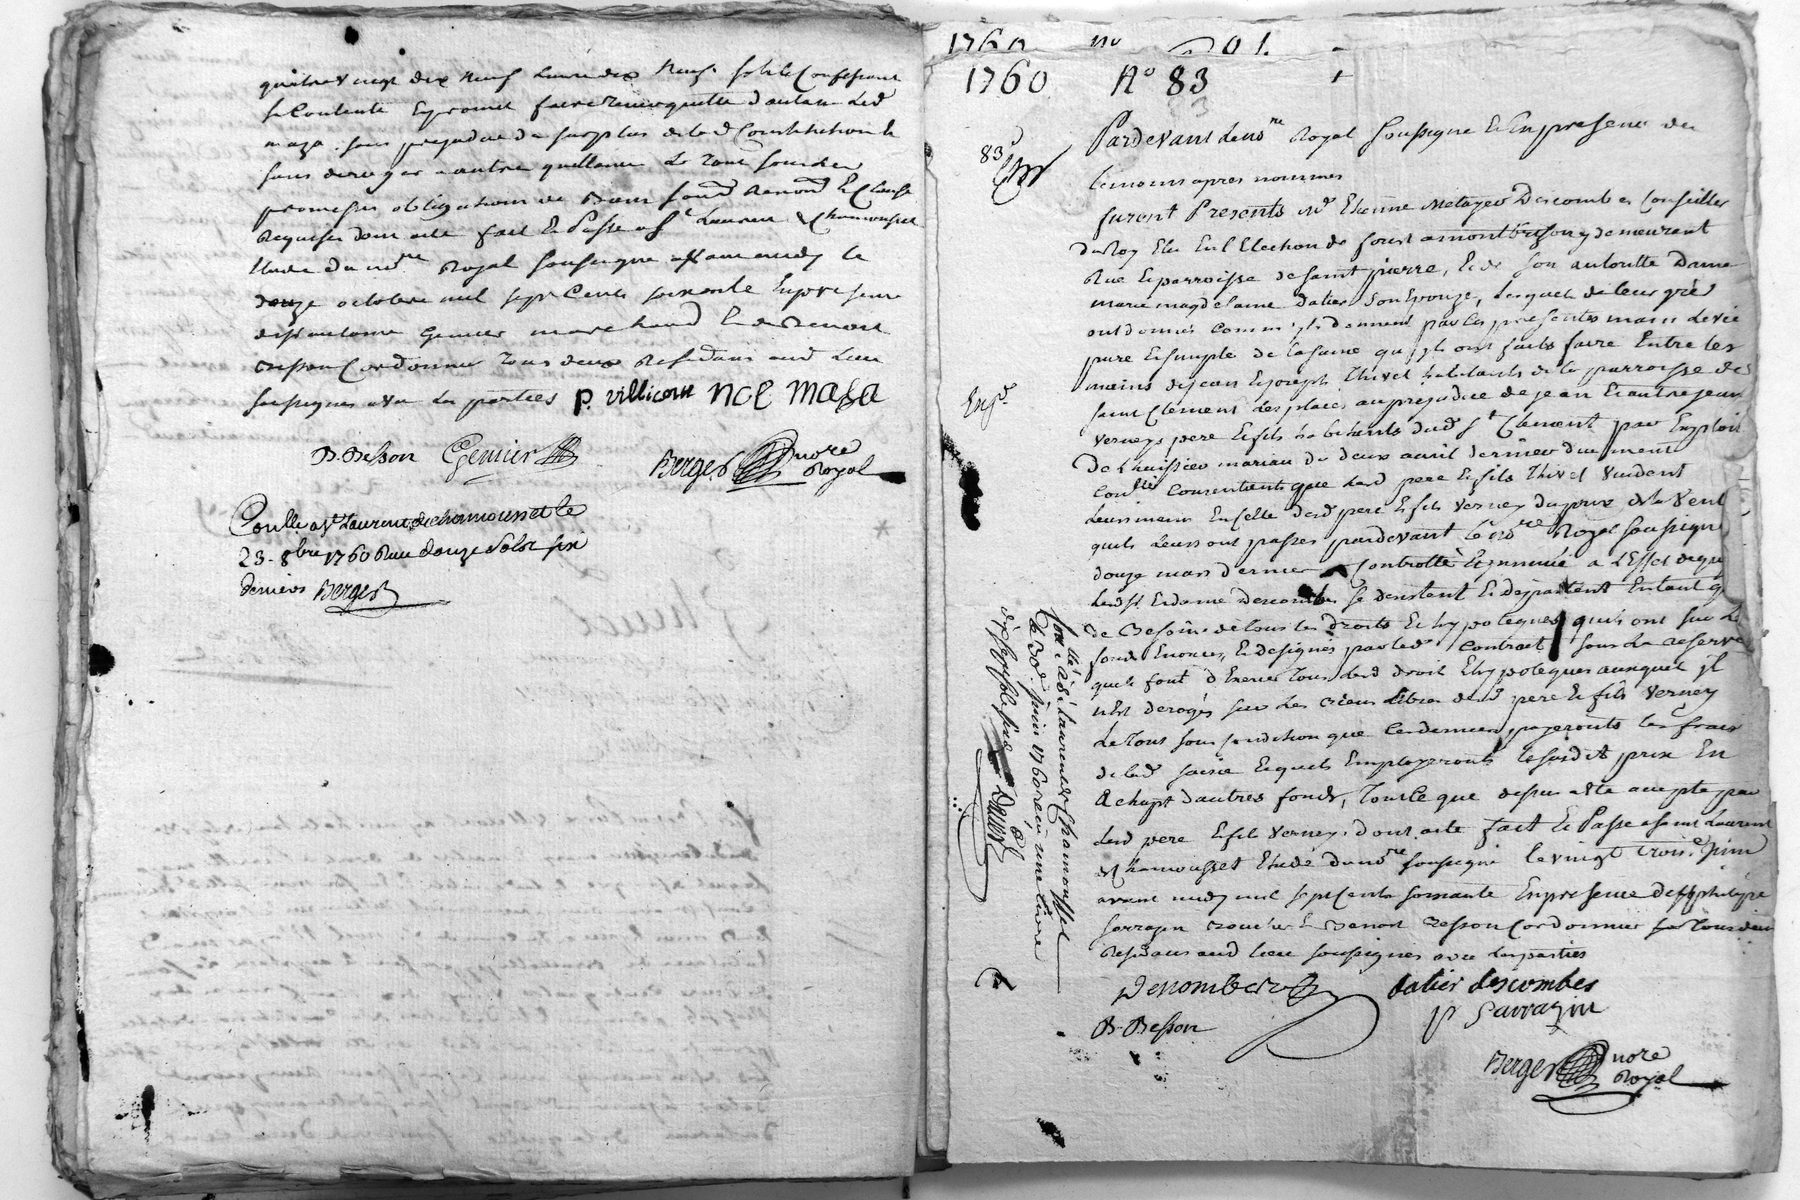 quatre vingt dix neuf livres dix neuf sols le Confessant
se Contente Et promet faire tenir quitte d'autant led
maza. sans prejudice du surplus de lad Constitution &
sans deroger a autre quittance Le tout sous les
promesses obligations de Biens soub.ons Renon.ons Et Clauses
Requises dont acte fait & Passé a St Laurent de chamousset
Etude du no.re Royal soussigné avant midy le
douze octobre mil sept Cents soixante En presence
de antoine Genier marchand & de Benoit
Besson Cordonnier tous deux Residans aud Lieu
soussignes avec les parties p. villicou noe maza
B. Besson Genier
Berger nore
Royal
Conlle a St Laurent de chamousset le
23. 8bre 1760 Reçu douze sols six
deniers Berger
1760 no 01.
1760 No 83
83
Pardevant le no.re Royal soussigné & En presence des
temoins apres nommes
furent Presents mre Etienne Metayer Descombes Conseiller
du Roy Elu En l'Election de forest a montbrison y demeurant
Rue & parroisse de saint pierre, & de son autorité Dame
marie magdelaine dalier son Epouze, Lesquels de leur gré
ont donnés Comme ils donnent par les presentes main Levée
pure & simple de la saisie qu'ils ont faits faire Entre les
mains de jean & joseph Thivel habitants de la parroisse de
saint Clement les places au prejudice de jean & autre jean
verney pere & fils habitants dud St Clement par Exploit
De L'huissier mariau du deux avril dernier duement
Con.lle Consentent que Lesd pere & fils Thivel vuident
Leurs mains En celle desd pere & fils verney du prix de la vente
quils leurs ont passés pardevant le no.re Royal soussigné
douze mars dernier Controllé & insinué a L'Effet de quoy
Lesd Sr & dame Descombes se desistent & départent En tant q
de Besoin de tous les droits & hypoteques quils ont sur les
fonds Enoncés, & designés par led Contrat sous La reserve
quils font d'Exercer tous Lesd droit & hypoteques auxquels il
n'Est derogés sur Les autres Biens desd pere & fils verney
Le tout sous condition que Ces derniers payeronts les frais
de lad saisie & quils Employeronts le susdit prix En
Achapt d'autres fonds, Tout ce que dessus a Eté accepté par
Lesd pere & fils verney. dont acte fait & Passé a saint Laurent
de chamousset Etude du no.re soussigné le vingt trois.e juin
avant midy mil sept Cents soixante En presence de philipe
sarrazin & de Benoit Besson Cordonnier tous deux
Residans aud Lieu soussignes avec les parties
Descombes dalier descombes
B. Besson p Sarrazin
Berger nore
Royal
Exp.e
Con.lle a St Laurent de Chamousset
le 30.e juin 1760 reçu une livre